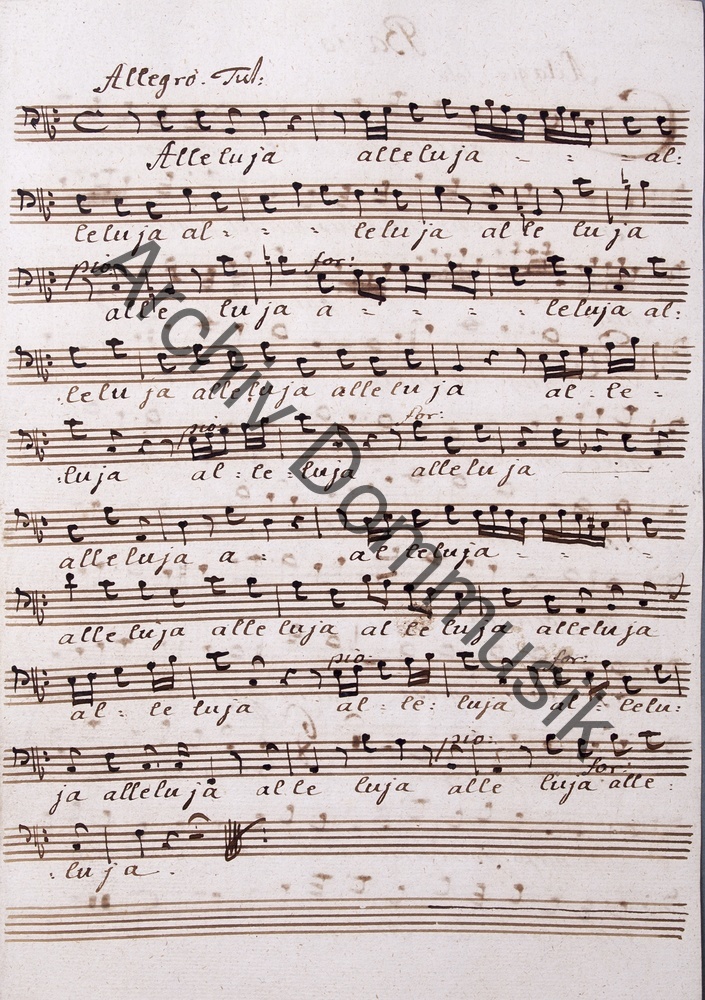 Allegro. Tut:
Alleluja alleluja - - - al:
leluja al - - - leluja alle luja
pio: for:
alle luja a - - - - leluja al:
leluja alleluja alleluja al - le -
pio: for:
luja al: le: luja alleluja
alleluja a - al leluja - - -
alle luja alle luja al le luja alleluja
pio: for:
al: le luja al: le: luja al: lelu:
pio:
ja alleluja alle luja alle luja alle:
for:
:luja.
Archiv Dommusik